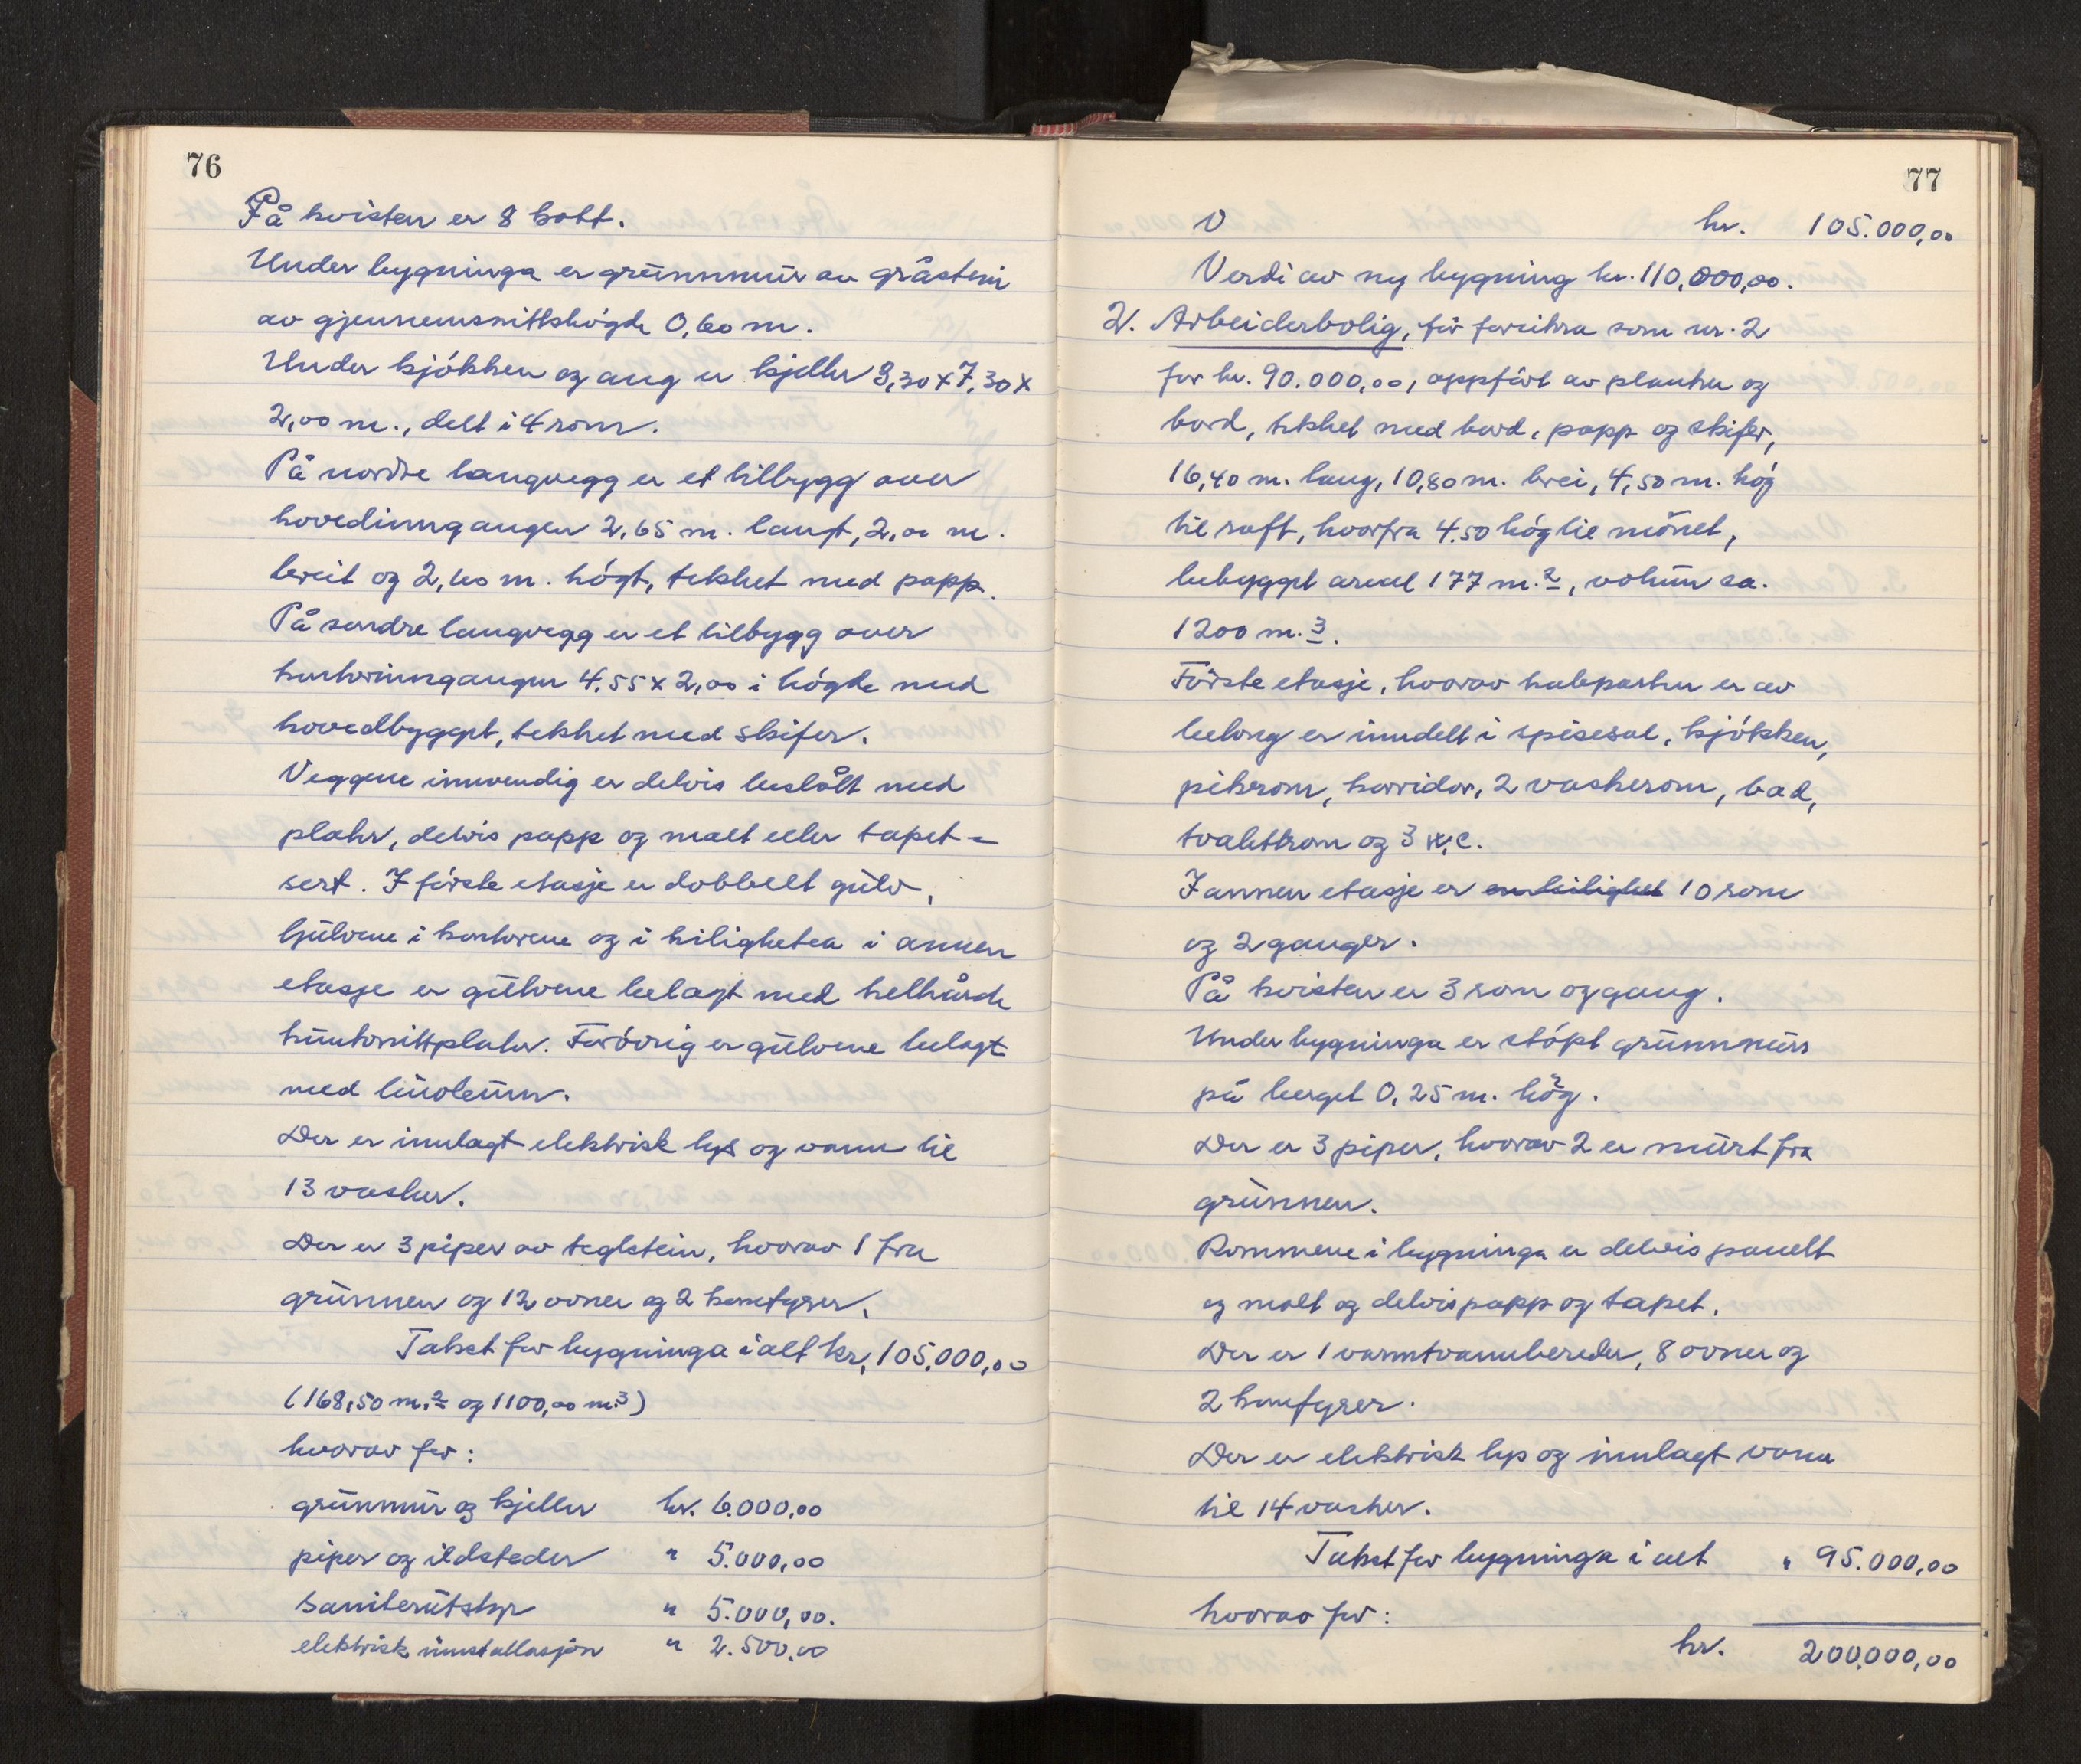 76
På kvisten er 8 kott.
Under bygninga er grunnmur av gråstein
av gjennemsnittshögde 0,60 m.
Under kjøkken og gang er kjeller 9,30 x 7,30 x
2,00 m., delt i 4 rom.
På nordre langvegg er et tilbygg over
hovedinngangen 2,65 m. langt, 2,00 m.
breit og 2,60 m. högt, tekket med papp.
På søndre langvegg er et tilbygg over
kontorinngangen 4,55 x 2,00 i högde med
hovedbygget, tekket med skifer.
Veggene innvendig er delvis beslått med
plater, delvis papp og malt eller tapet-
sert. I förste etasje er dobbelt gulv,
Gulvene i kontorene og i leiligheten i annen
etasje er gulvene belagt med helhårde
huntonittplater. Forövrig er gulvene belagt
med linoleum.
Der er innlagt elektrisk lys og vann til
13 vasker.
Der er 3 piper av teglstein, hvorav 1 fra
grunnen og 12 ovner og 2 komfyrer.
Takst for bygninga i alt kr. 105.000,00
(168,50 m.2 og 1100,00 m3)
hvorav for:
grunnmur og kjeller kr. 6.000,00
piper og ildsteder " 5.000,00
sanitærutstyr " 5.000,00.
elektrisk innstallasjon " 2.500,00
77
kr. 105.000,00
Verdi av ny bygning kr. 110.000,00.
2. Arbeiderbolig, før forsikra som nr. 2
for kr. 90.000,00, oppført av planker og
bord, tekket med bord, papp og skifer,
16,40 m. lang, 10,80 m. brei, 4,50 m. hög
til raft, hvorfra 4.50 hög til mönet,
bebygget areal 177 m.2, volum ca.
1200 m.3.
Förste etasje, hvorav halvparten er av
betong er inndelt i spisesal, kjökken,
pikerom, korridor, 2 vaskerom, bad,
toalettrom og 3 w.c.
I annen etasje er en leilighet 10 rom
og 2 ganger.
På kvisten er 3 rom og gang.
Under bygninga er stöpt grunnmurs
på berget 0,25 m. hög.
Der er 3 piper, hvorav 2 er murt fra
grunnen.
Rommene i bygninga er delvis panelt
og malt og delvis papp og tapet.
Der er 1 varmtvannbereder, 8 ovner og
2 komfyrer.
Der er elektrisk lys og innlagt vann
til 14 vasker.
Takst for bygninga i alt " 95.000,00
hvorav for:
kr. 200.000,00